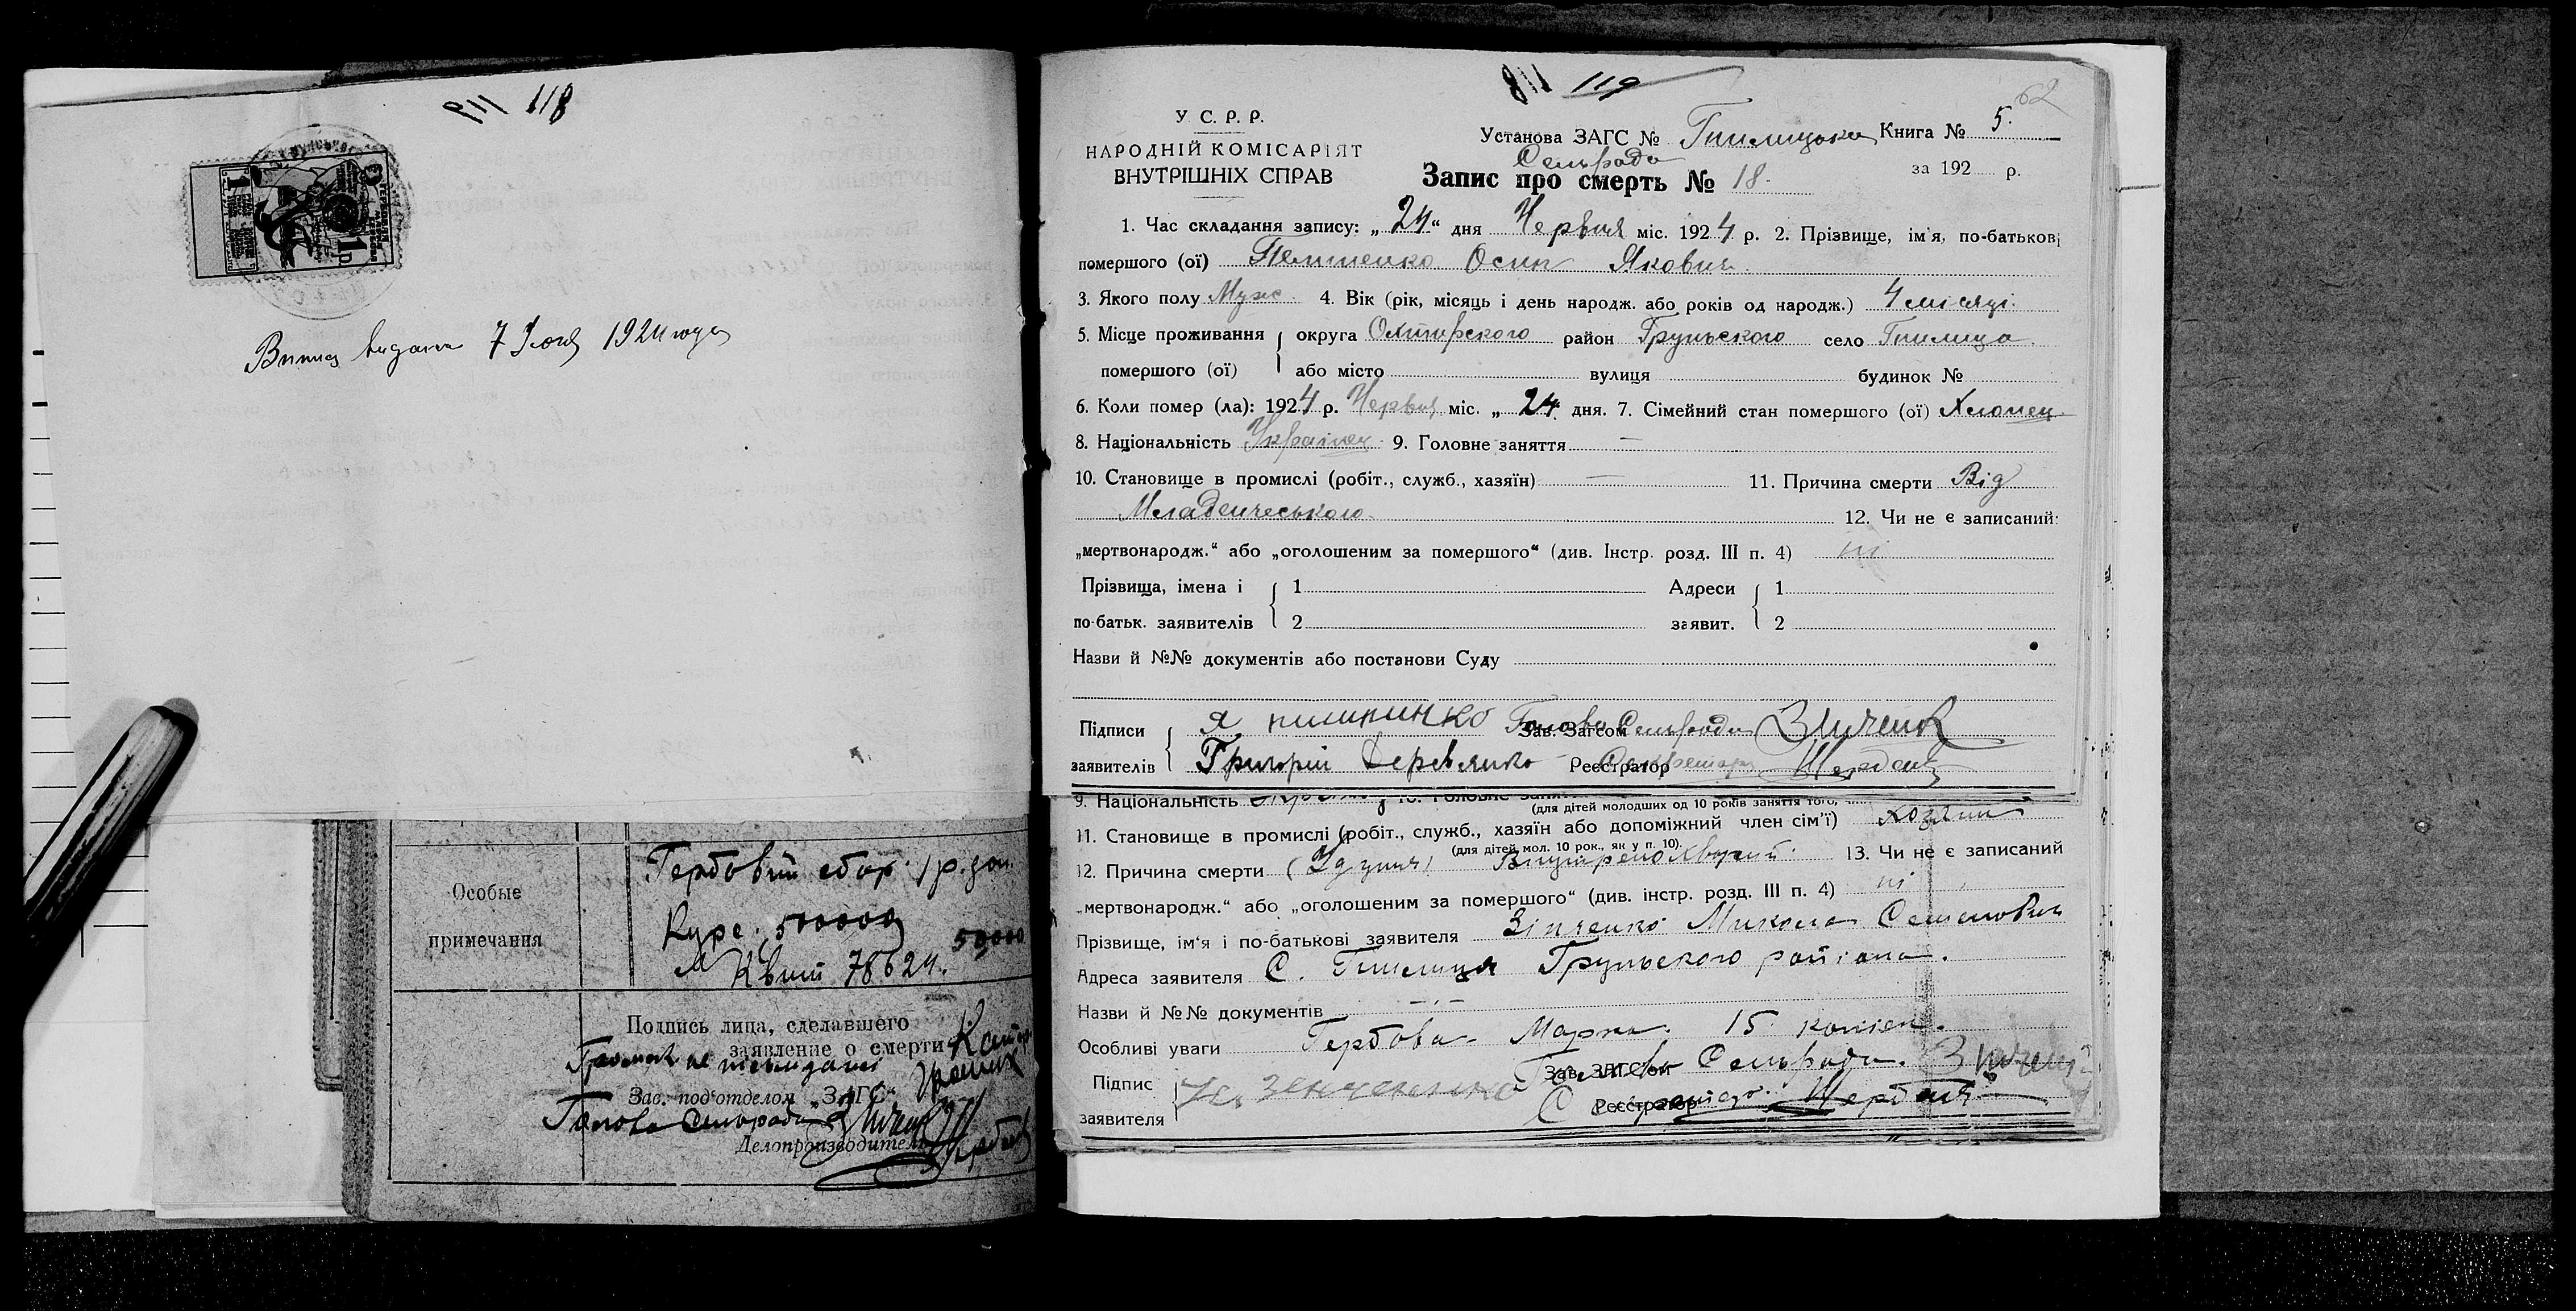 118
1р
1
119
62
У. С. Р. Р.
НАРОДНІЙ КОМІСАРІЯТ
ВНУТРІШНІХ СПРАВ
Установа ЗАГС № Гнилицька Книга № 5.
Сельрада
за 192 р.
Запис про смерть № 18.
1. Час складання запису: „24“ дня Червня міс. 1924 р. 2. Прізвище, ім'я, по-батькові
помершого (ої) Осип Якович.
3. Якого полу Муж. 4. Вік (рік, місяць і день народж. або років од народж.) 4 місяці.
5. Місце проживання округа Охтирского район Груньского село Гнилица.
помершого (ої) або місто вулиця будинок №
6. Коли помер (ла): 1924 р. Червня міс. „24 дня. 7. Сімейний стан помершого (ої) Хлопец
8. Національність Українец 9. Головне заняття —
10. Становище в промислі (робіт., служб., хазяїн) — 11. Причина смерти Від
Младенческького 12. Чи не є записаний:
„мертвонародж.“ або „оголошеним за помершого“ (див. Інстр. розд. III п. 4) ні
Прізвища, імена і 1 Адреси 1
по-батьк. заявителів 2 заявит. 2
Назви й №№ документів або постанови Суду
Підписи Я Голова Сельради Зав. Загсом
заявителів Григорій Деревянко Реєстратор Секретарь
9. Національність
(для дітей молодших од 10 років заняття того,
11. Становище в промислі (робіт., служб., хазяїн або допоміжний член сім'ї) Хозяин
(для дітей мол. 10 рок., як у п. 10).
12. Причина смерти 13. Чи не є записаний
„мертвонародж.“ або „оголошеним за помершого“ (див. інстр. розд. III п. 4) ні
Прізвище, ім'я і по-батькові заявителя Зінченко Микола Семенович
Адреса заявителя С. Гнилиця Груньского району.
Назви й №№ документів — . —
Особливі уваги Гербова Марка 15 копієк.
Підпис Зав. ЗАГСом Голова Сельради.
заявителя Реєстратор
118
Випис видана 7 Юля 1924 года
Особые
примечания
Гербовий сбор 1 р. зол.
Курс. 500000
50000
Квит 78624.
Подпись лица, сделавшего
заявление о смерти
Зав. под'отделом „ЗАГС“
Голова Сельради
Делопроизводитель